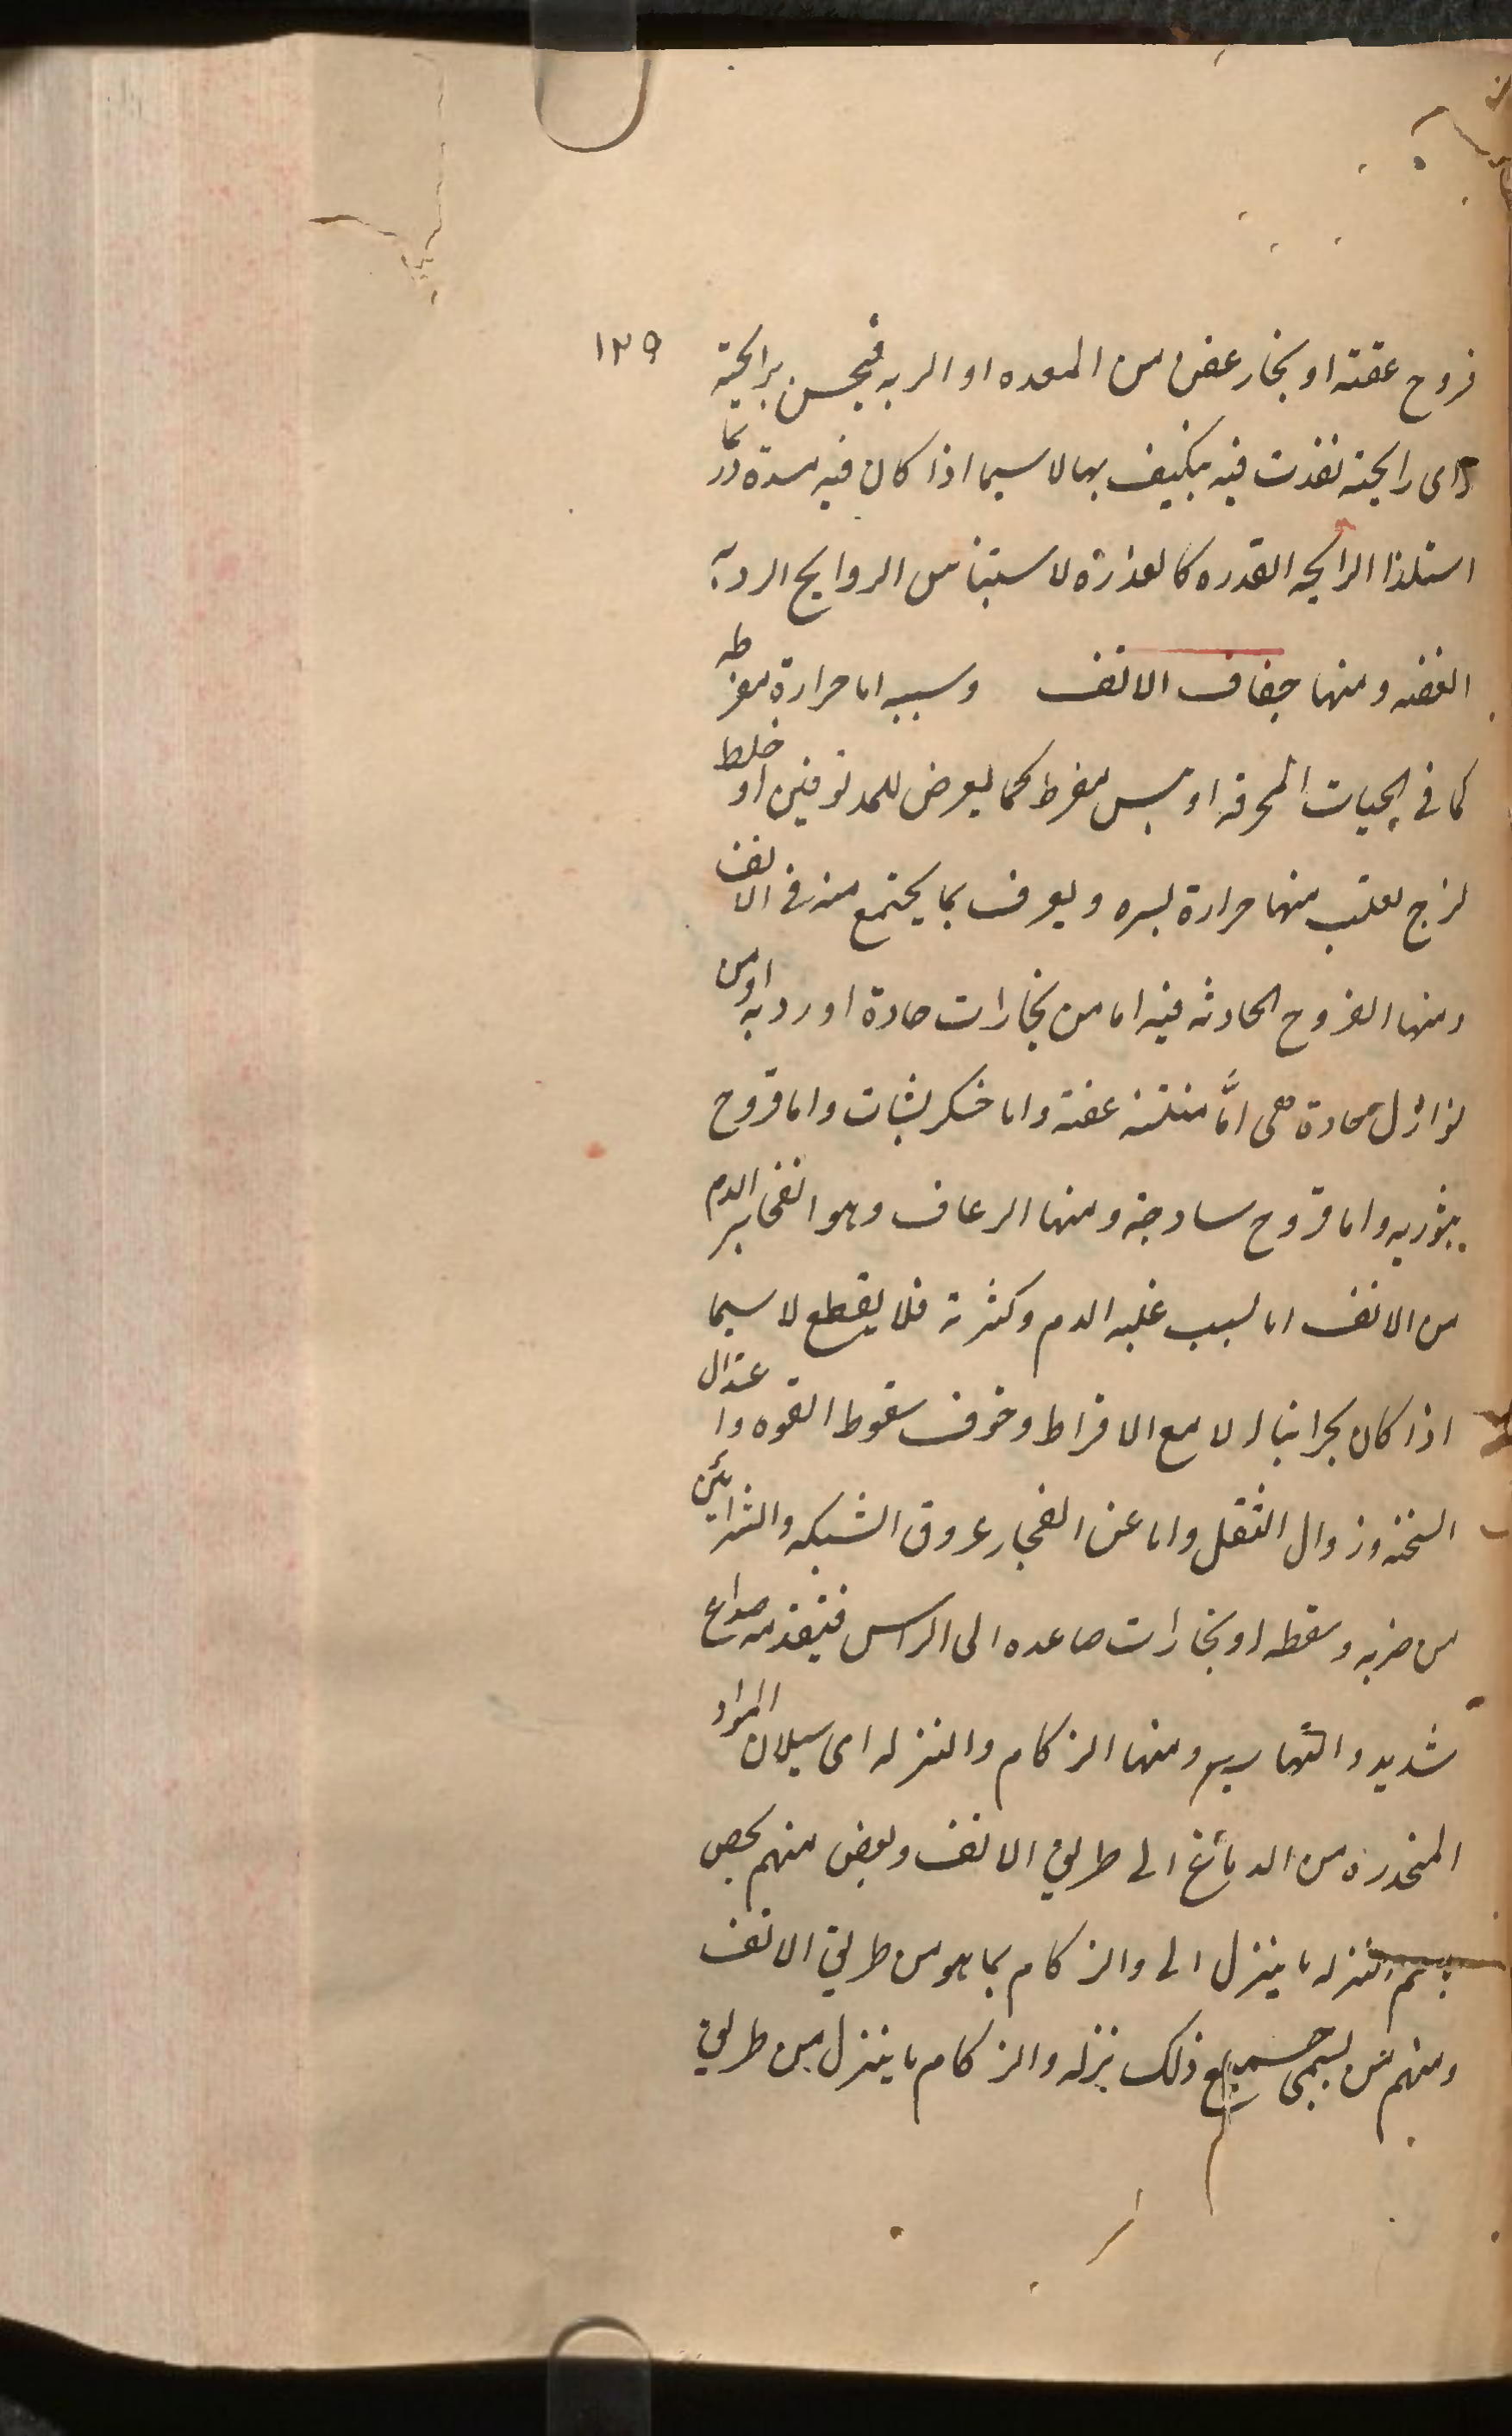 ١٣٩
قروح عفنة او بخار عفن من المعده او الريه فيحس برايحة
واى رايحة نفذت فيه يكيف بها لا سيما اذا كان فيه سدة وربما
استلذ الرايحه القذره كالعذارة لاستيناس الروايح الرديه
العفنه ومنها جفاف الانف وسببه اما حرارة مفرطه
كما فى الحميات المحرقه او يبس مفرط كما يعرض للمدقوقين او خلط
لزج لعلت منها حرارة يسره ويعرف بما يجتمع منه فى الانف
ومنها القروح الحادثه فيه اما من بخارات حادة او رديه او من
نوازل حادة هى امّا منتنة عفنة واما خشكريشات واما قروح
بثوريه واما قروح ساذجة ومنها الرعاف وهو انفجار الدم
من الانف اما لسبب غلبه الدم وكثرته فلا يقطع لا سيما
اذا كان بحرانيا الا مع الافراط وخوف سقوط القوه واعتدال
السخنه وزوال الثقل واما عن انفجار عروق الشبكه والشرايين
من ضربه وسقطه او بخارات صاعده الى الراس فيتقدمه صداع
شديد والتهاب ومنها الزكام والنزله اى سيلان المواد
المنحدره من الدماغ الى طريق الانف وبعض منهم يخص
باسم النزله ما ينزل الى والزكام بما هو من طريق الانف
ومنهم من يسمى جميع ذلك نزله والزكام ما ينزل من طريق